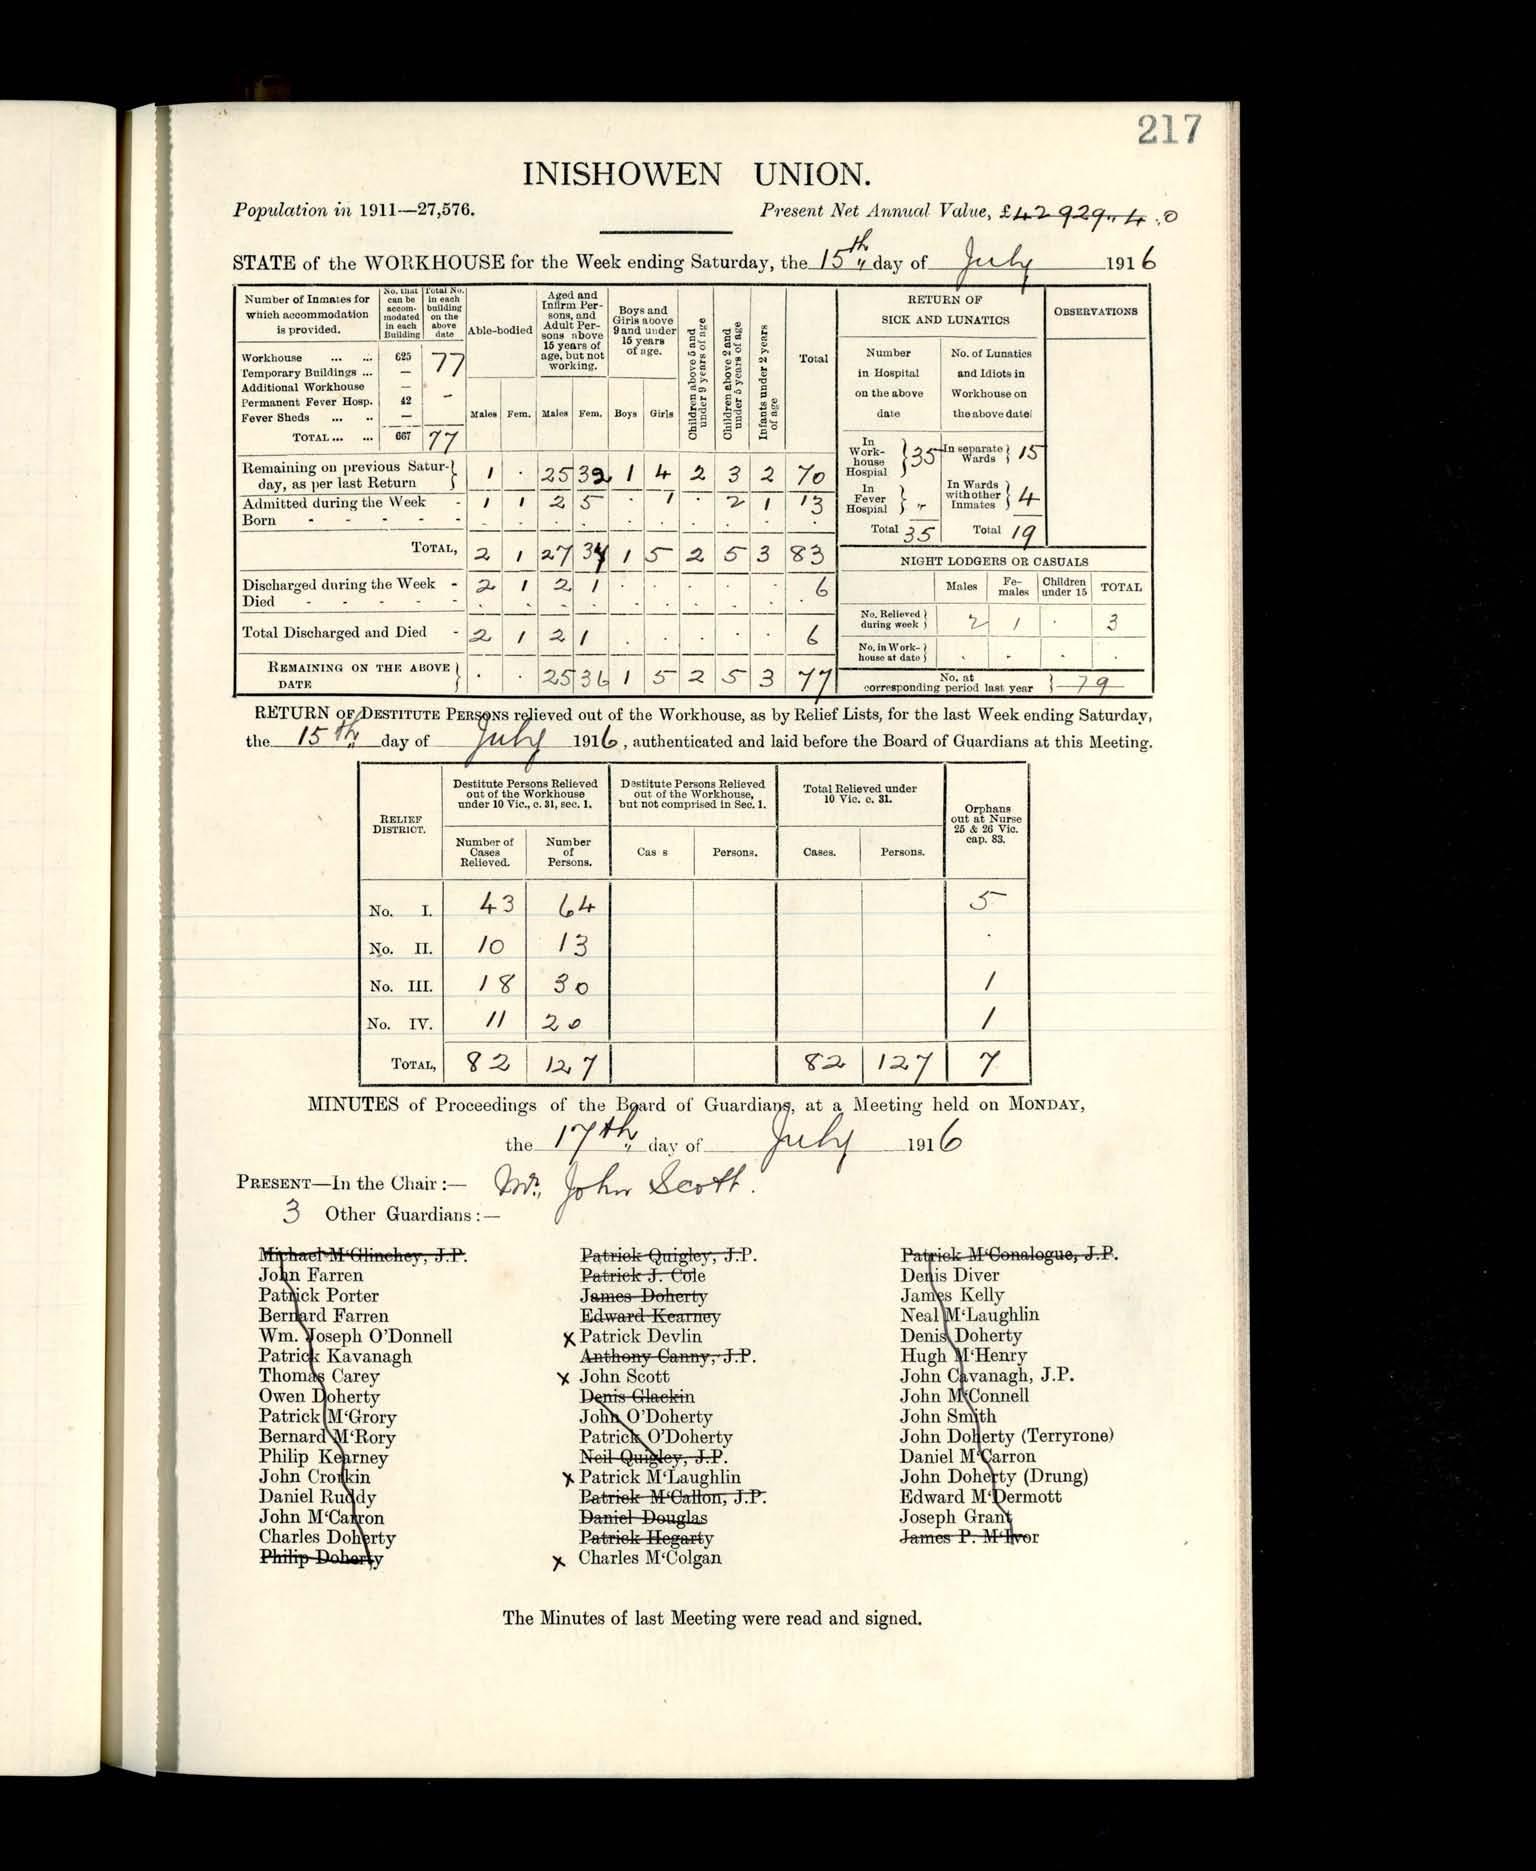 217
INISHOWEN UNION.
Population in 1911—27,576. Present Net Annual Value, £42929.. 4 .0
STATE of the WORKHOUSE for the Week ending Saturday, the 15th day of July 1916
Number of Inmates for which accommodation is provided. No. that can be accommodated in each Building Total No. in each building on the above date Able-bodied Aged and Infirm Persons, and Adult Persons above 15 years of age, but not working. Boys and Girls above 9 and under 15 years of age. Children above 5 and under 9 years of age Children above 2 and under 5 years of age Infants under 2 years of age Total
Males Fem. Males Fem. Boys Girls
Workhouse ... ... 625 77
Temporary Buildings ... —
Additional Workhouse —
Permanent Fever Hosp. 42 -
Fever Sheds ... .. —
TOTAL ... ... 667 77
Remaining on previous Saturday, as per last Return 1 . 25 32 1 4 2 3 2 70
Admitted during the Week - 1 1 2 5 . 1 . 2 1 13
Born - - - - - . . . . . . . . . .
TOTAL, 2 1 27 37 1 5 2 5 3 83
Discharged during the Week - 2 1 2 1 . . . . . 6
Died - - - - - . . . . . . . . . .
Total Discharged and Died - 2 1 2 1 . . . . . 6
REMAINING ON THE ABOVE DATE . . 25 36 1 5 2 5 3 77
RETURN OF SICK AND LUNATICS OBSERVATIONS
Number in Hospital on the above date No. of Lunatics and Idiots in Workhouse on the above date
In Workhouse Hospial 35 In separate Wards 15
In Fever Hospial " In Wards with other Inmates 4
Total 35 Total 19
NIGHT LODGERS OR CASUALS
Males Females Children under 15 TOTAL
No. Relieved during week 2 1 . 3
No. in Workhouse at date . . . .
No. at corresponding period last year 79
RETURN OF DESTITUTE PERSONS relieved out of the Workhouse, as by Relief Lists, for the last Week ending Saturday,
the 15th day of July 1916, authenticated and laid before the Board of Guardians at this Meeting.
RELIEF DISTRICT. Destitute Persons Relieved out of the Workhouse under 10 Vic., c. 31, sec. 1. Destitute Persons Relieved out of the Workhouse, but not comprised in Sec. 1. Total Relieved under 10 Vic. c. 31. Orphans out at Nurse 25 & 26 Vic. cap. 83.
Number of Cases Relieved. Number of Persons. Cas s Persons. Cases. Persons.
No. I. 43 64 5
No. II. 10 13 .
No. III. 18 30 1
No. IV. 11 20 1
TOTAL, 82 127 82 127 7
MINUTES of Proceedings of the Board of Guardians, at a Meeting held on MONDAY,
the 17th day of July 1916
PRESENT—In the Chair :— Mr. John Scott.
3 Other Guardians :—
Michael M'Glinchey, J.P.
John Farren
Patrick Porter
Bernard Farren
Wm. Joseph O'Donnell
Patrick Kavanagh
Thomas Carey
Owen Doherty
Patrick M'Grory
Bernard M'Rory
Philip Kearney
John Crorkin
Daniel Ruddy
John M'Carron
Charles Doherty
Philip Doherty
Patrick Quigley, J.P.
Patrick J. Cole
James Doherty
Edward Kearney
x Patrick Devlin
Anthony Canny, J.P.
x John Scott
Denis Glackin
John O'Doherty
Patrick O'Doherty
Neil Quigley, J.P.
x Patrick M'Laughlin
Patrick M'Callon, J.P.
Daniel Douglas
Patrick Hegarty
x Charles M'Colgan
Patrick M'Conalogue, J.P.
Denis Diver
James Kelly
Neal M'Laughlin
Denis Doherty
Hugh M'Henry
John Cavanagh, J.P.
John M'Connell
John Smith
John Doherty (Terryrone)
Daniel M'Carron
John Doherty (Drung)
Edward M'Dermott
Joseph Grant
James P. M'Ivor
The Minutes of last Meeting were read and signed.